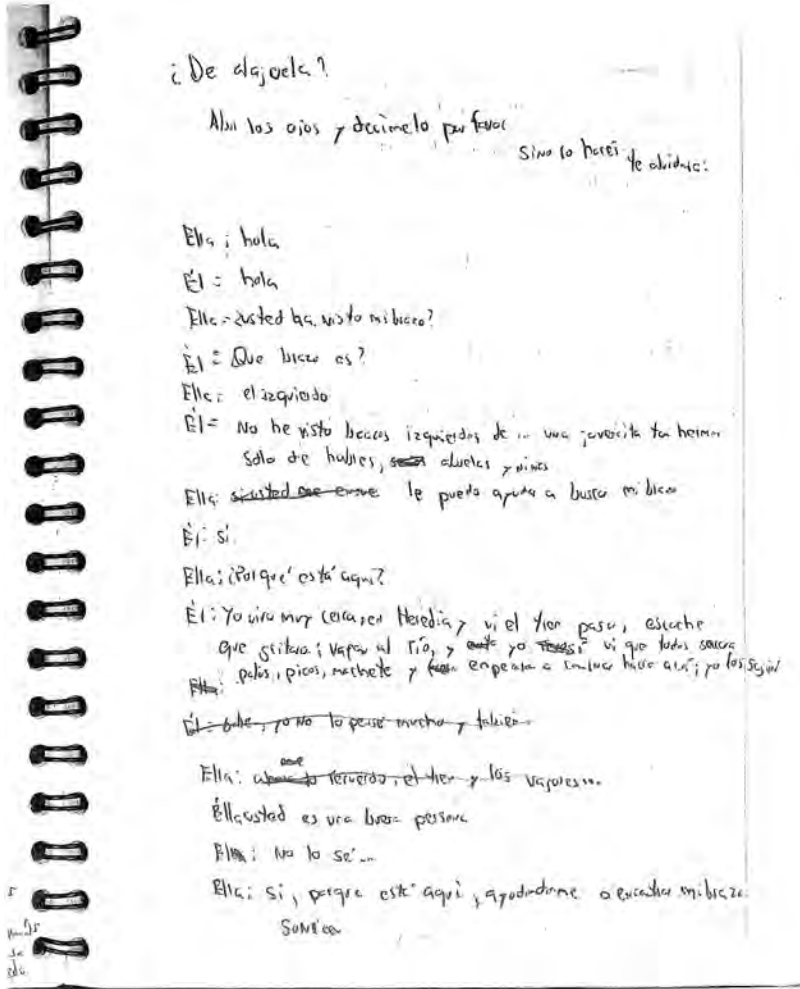 ¿De alajuela?
Abri los ojos y decimelo por favor
Sino lo haces te olvidare.
Ella: hola
Él: hola
Ella: usted ha visto mi brazo?
Él: Que brazo es?
Ella: el izquierdo
Él: No he visto brazos izquierdos de una jovencita tan hermosa
solo de hombres, abuelas y niños
Ella: si usted me le puedo ayudar a buscar mi brazo
Él: si.
Ella: ¿Por qué está aquí?
Él: Yo vivo muy cerca, en Heredia y vi el tren pasar, escuche
que gritaron: al río, y yo vi que todos sacaron
palos, picos, machete y a hacia acá; yo los seguí
Ella:
Él: yo no lo pensé mucho y
Ella: recuerdo, el tren y los vagones...
Ella: usted es una buena persona
El: No lo sé...
Ella: Si, porque está aquí, ayudandome a encontrar mi brazo.
Sonríen